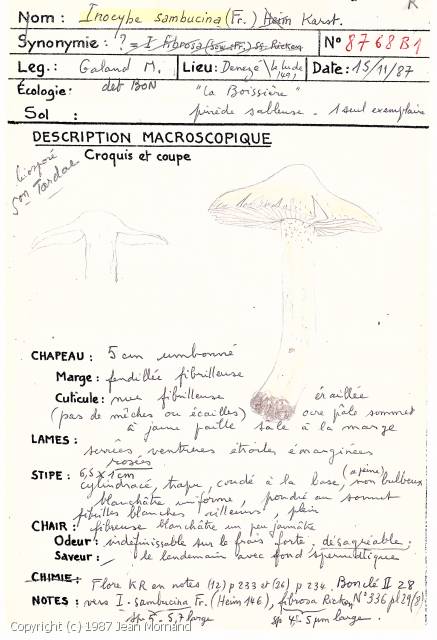 Nom : Inocybe sambucina (Fr.) Heim Karst.
Synonymie : ? = I fibrosa (Sow. Fr.) ss Ricken N° 8768B1
Leg.: Galand M. Lieu: Denezé (le Lude 149) Date: 15/11/87
det BON
Écologie: "La Boissière"
Sol : pinède sableuse - 1 seul exemplaire
DESCRIPTION MACROSCOPIQUE
Croquis et coupe
CHAPEAU : 5 cm umbonné
Marge : fendillée fibrilleuse
Cuticule : nue fibrilleuse éraillée
(pas de mèches ou écailles) ocre pâle sommet
à jaune paille sale à la marge
LAMES :
serrées, ventrues étroites émarginées
rosées
STIPE : 6,5 x 1 cm
cylindracé, trapu, coudé à la base, (à peine) non bulbeux
blanchâtre uniforme, poudré au sommet
fibrilles blanches ailleurs, plein
CHAIR : fibreuse blanchâtre un peu jaunâtre
Odeur : indéfinissable sur le frais forte, désagréable;
Saveur : le lendemain avec fond spermatique
CHIMIE : Flore KR en notes (12) p 233 et (26) p 234. Bon clé II 28
NOTES : vers I. sambucina Fr. (Heim 146), fibrosa Ricken N° 336 pl 29(8)
sp 5-5,7 large sp 4-5µm large
Copyright (c) 1987 Jean Mornand